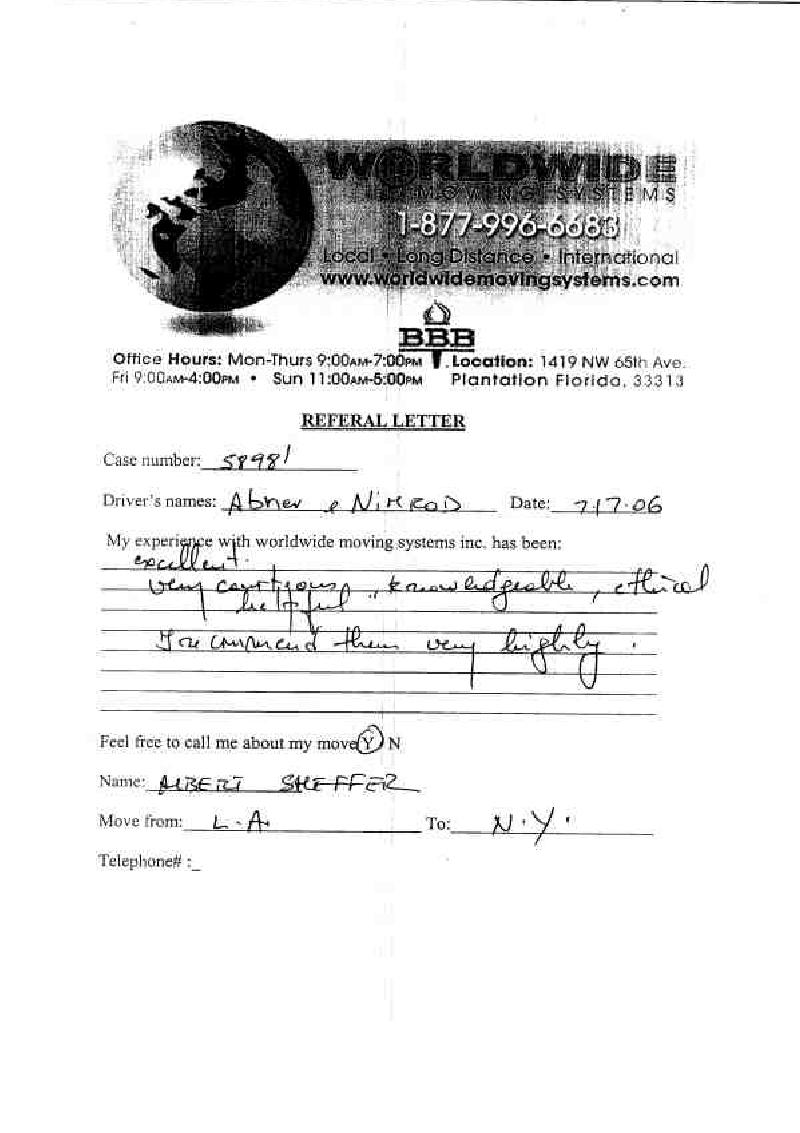 WORLDWIDE
MOVING SYSTEMS
1-877-996-6683
Local • Long Distance • International
www.worldwidemovingsystems.com
BBB
Office Hours: Mon-Thurs 9:00AM-7:00PM
Fri 9:00AM-4:00PM • Sun 11:00AM-5:00PM
Location: 1419 NW 65th Ave.
Plantation Florida, 33313
REFERAL LETTER
Case number: 58981
Driver's names: Abner e NiMROD Date: 7/17.06
My experience with worldwide moving systems inc. has been:
excellent.
very courtious, knowledgeable, ethical
helpful
I recommend them very highly.
Feel free to call me about my move Y N
Name: ALBERT SHEFFER
Move from: L.A. To: N.Y.
Telephone# :_